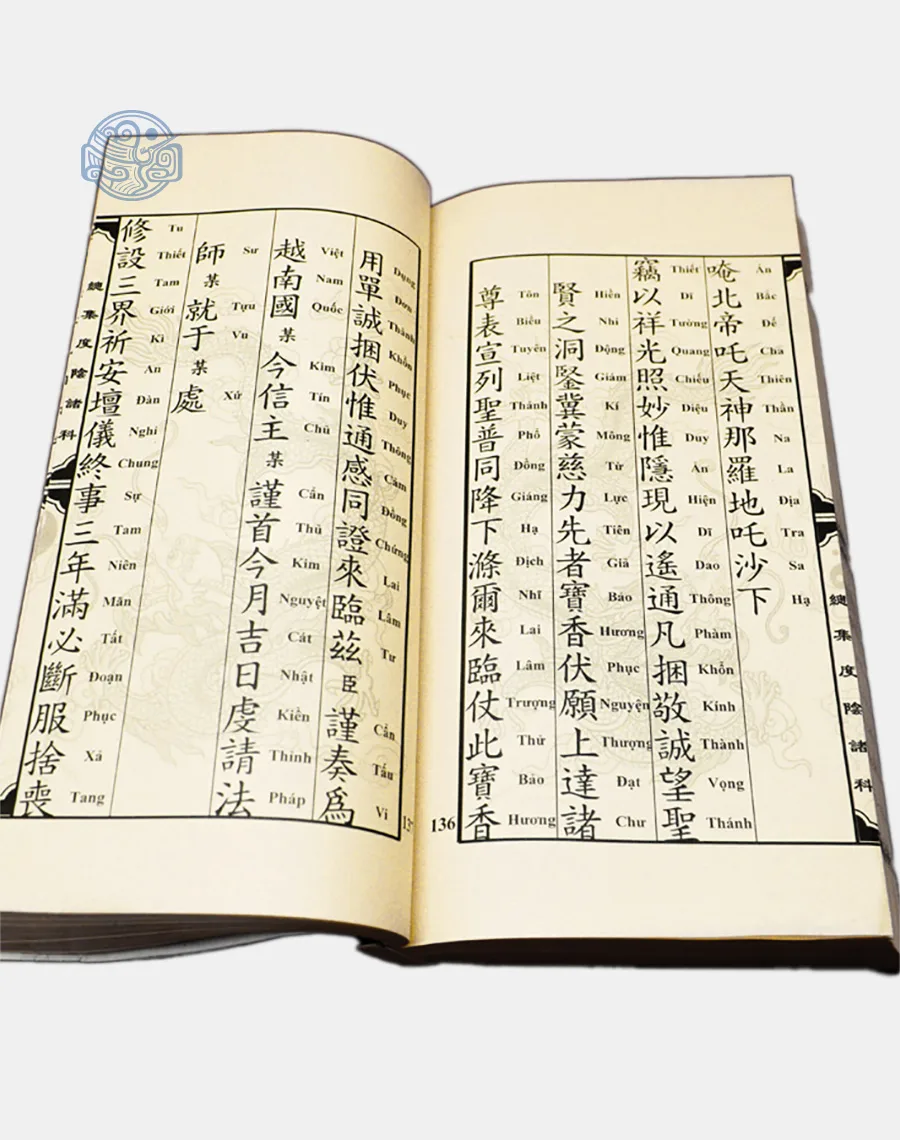 總集度陰諸科
唵北帝吒天神那羅地吒沙下
Án Bắc Đế Cha Thiên Thần Na La Địa Tra Sa Hạ
竊以祥光照妙惟隱現以遙通凡捆敬誠望聖
Thiết Dĩ Tường Quang Chiếu Diệu Duy Ản Hiện Dĩ Dao Thông Phàm Khổn Kính Thành Vọng Thánh
賢之洞鋻冀蒙慈力先者寶香伏願上達諸
Hiền Nhi Động Giám Kí Mông Từ Lực Tiên Giả Bảo Hương Phục Nguyện Thượng Đạt Chư
尊表宣列聖普同降下滌爾來臨仗此寶香
Tôn Biểu Tuyên Liệt Thánh Phổ Đồng Giáng Hạ Địch Nhĩ Lai Lâm Trượng Thử Bảo Hương
136
用單誠捆伏惟通感同證來臨茲臣謹奏爲
Dụng Đơn Thành Khổn Phục Duy Thông Cảm Đồng Chứng Lai Lâm Tư Cẩn Tấu Vi
越南國某今信主某謹首今月吉日虔請法
Việt Nam Quốc Kim Tín Chủ Cẩn Thủ Kim Nguyệt Cát Nhật Kiền Thỉnh Pháp
師某就于某處
Sư Tựu Vu Xứ
修設三界祈安壇儀終事三年滿必斷服捨喪
Tu Thiết Tam Giới Kì An Đàn Nghi Chung Sự Tam Niên Mãn Tất Đoạn Phục Xả Tang
總集度陰諸科